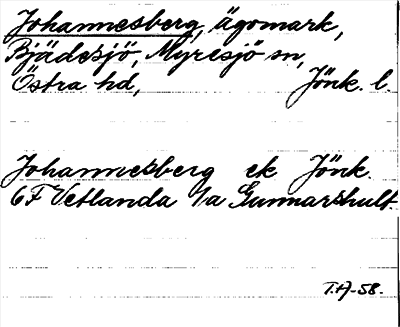 Johannesberg, ägomark,
Bjädesjö, Myresjö sn,
Östra hd, Jönk. l.
Johannesberg ek Jönk.
6F Vetlanda 1a Gunnarshult.
T.H-58.